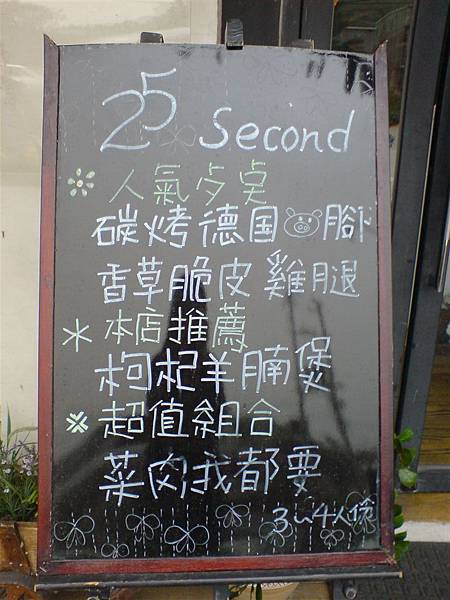 25 Second
人氣
碳烤德国腳
香草脆皮雞腿
＊本店推薦
枸杞羊腩煲
※超值組合
菜肉我都要
3~4人